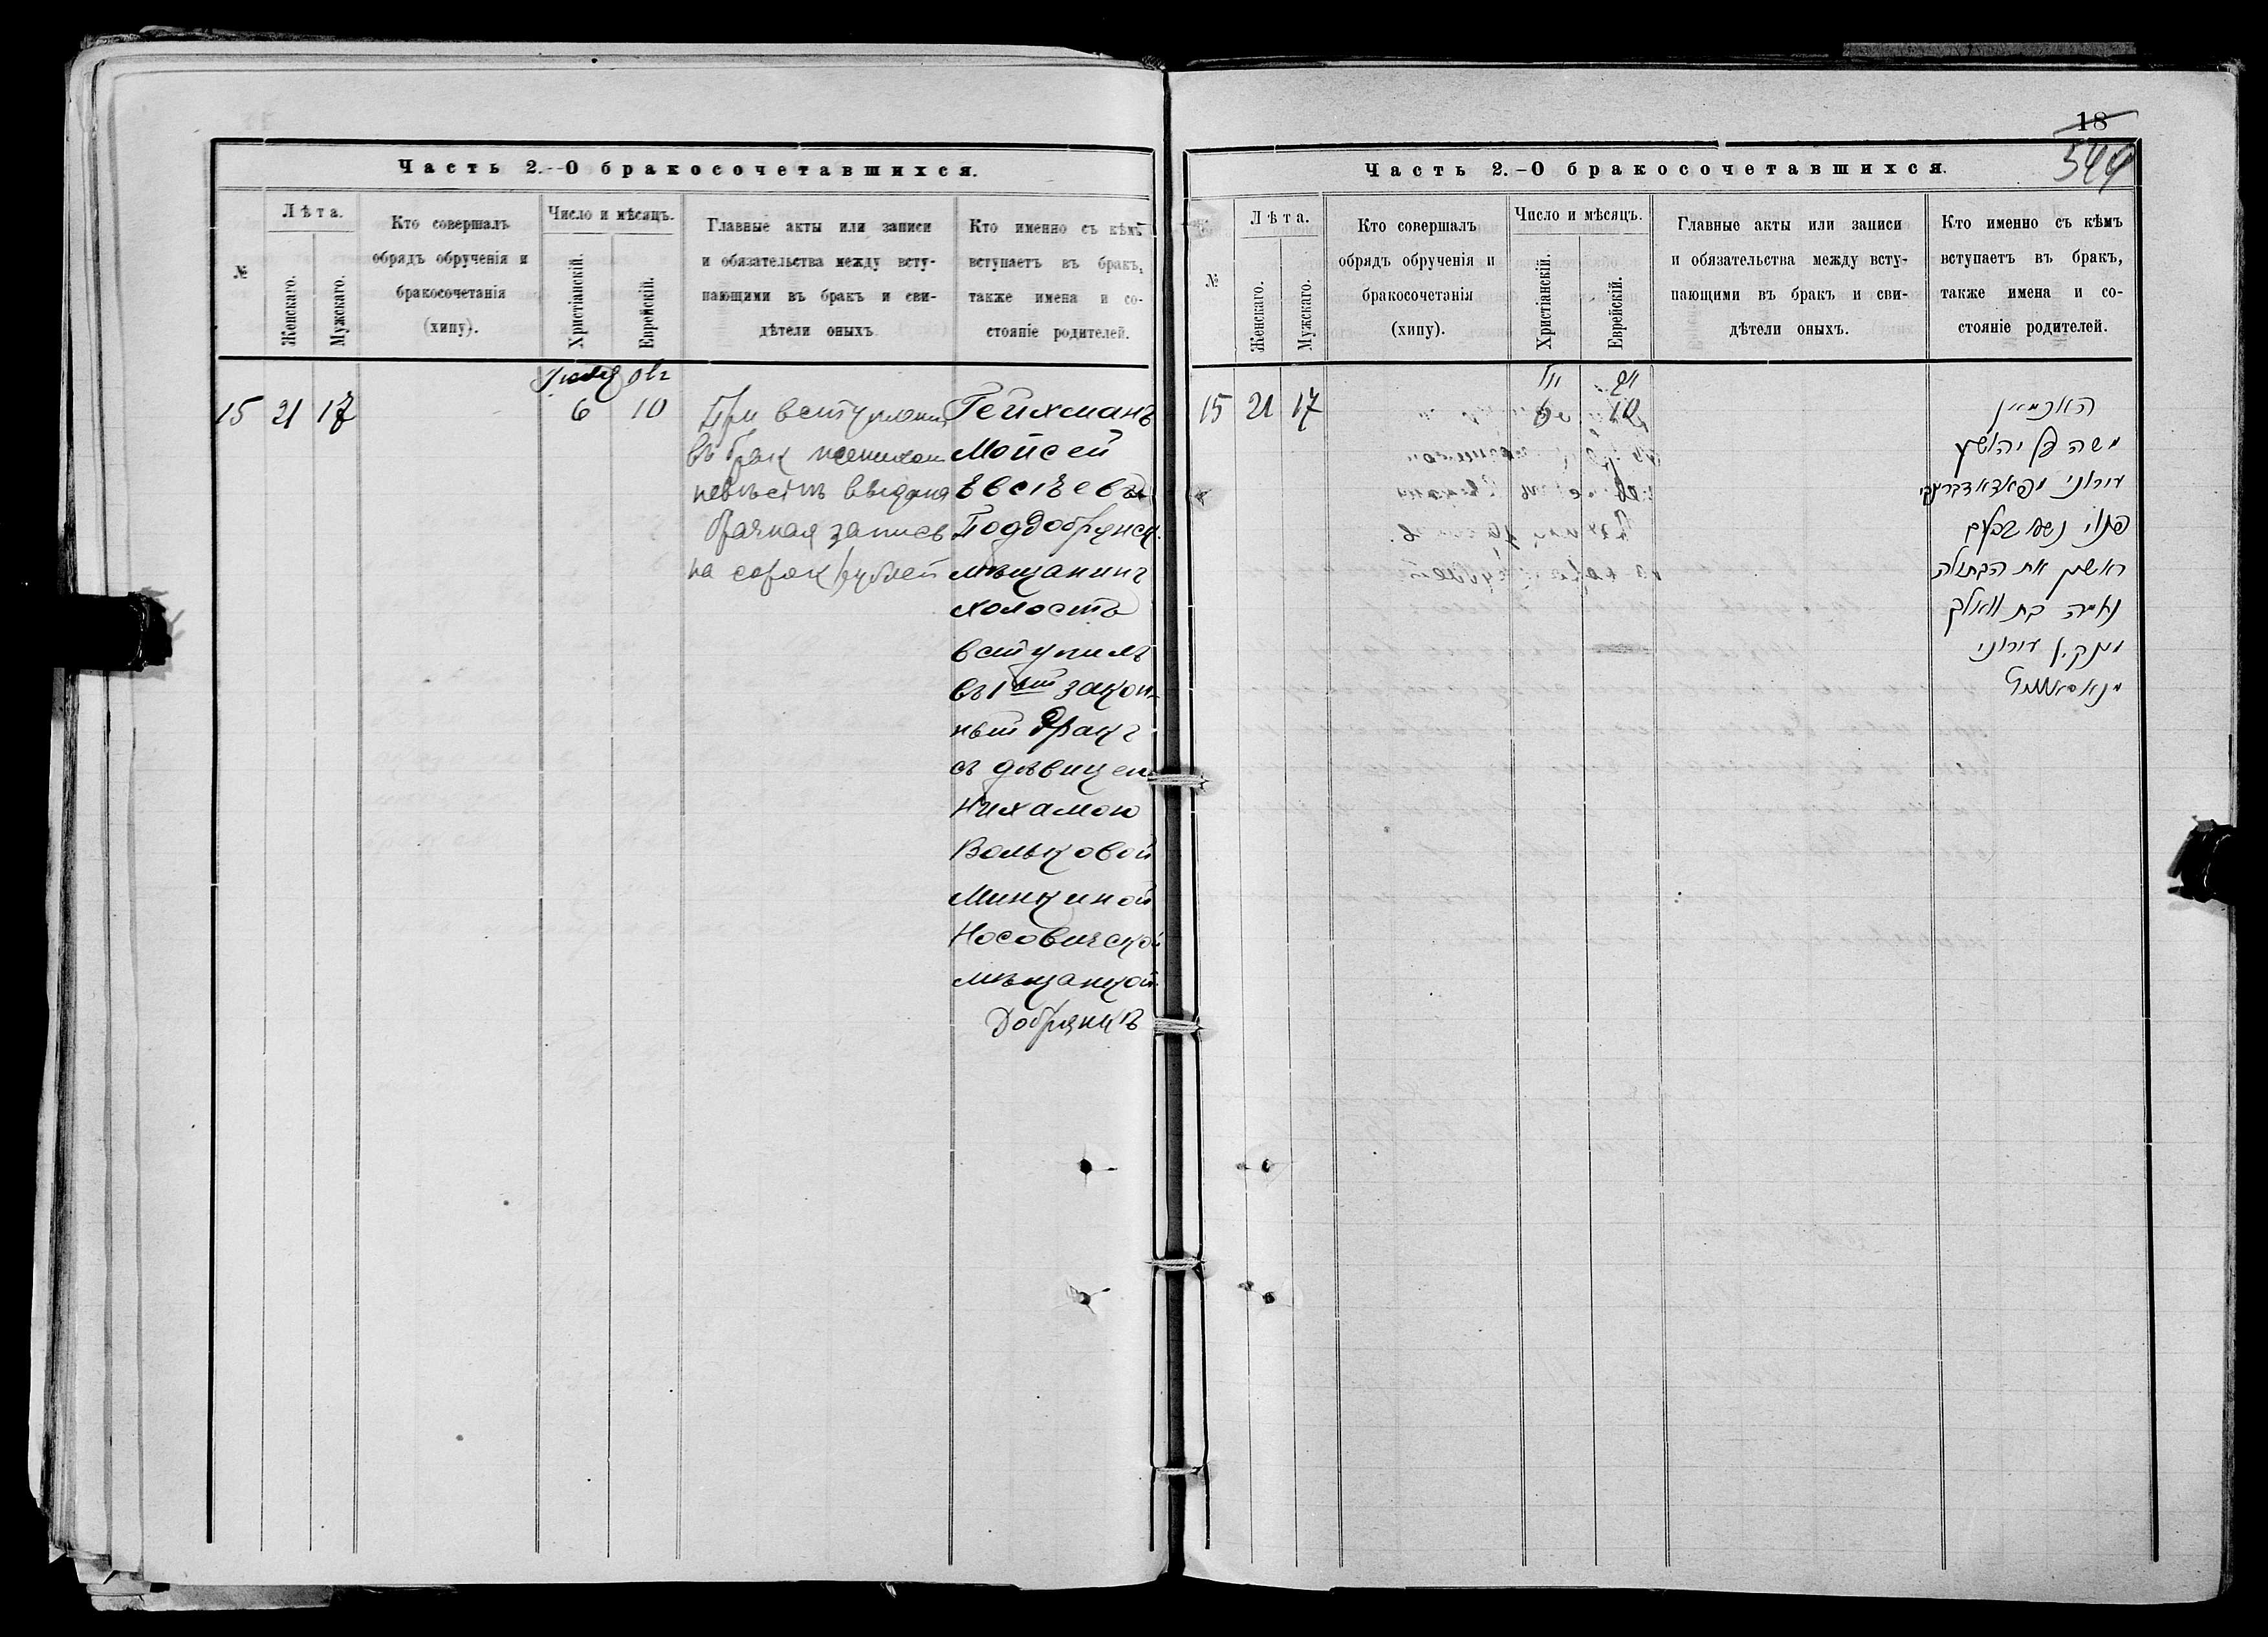 Часть 2.—О бракосочетавшихся.
№
Лѣта.
Женскаго.
Мужскаго.
Кто совершалъ
обрядъ обрученія и
бракосочетанія
(хипу).
Число и мѣсяцъ.
Христіанскій.
Еврейскій.
Главные акты или записи
и обязательства между всту-
пающими въ бракъ и сви-
дѣтели оныхъ.
Кто именно съ кѣмъ
вступаетъ въ бракъ,
также имена и со-
стояніе родителей.
15 21 17
6 10
При вступленіи
въ брак женихом
невѣстѣ выдана
брачная запись
на сорок рублей
Гейхманъ
Мойсей
Евсѣевъ
Поддобрянск.
мѣщанинъ
холостъ
вступилъ
въ 1ый закон-
ный бракъ
съ дѣвицею
Нихамою
Вольковой
Минкиной
Носовичской
мѣщанкой
Добрянкѣ
18
544
Часть 2.—О бракосочетавшихся.
№
Лѣта.
Женскаго.
Мужскаго.
Кто совершалъ
обрядъ обрученія и
бракосочетанія
(хипу).
Число и мѣсяцъ.
Христіанскій.
Еврейскій.
Главные акты или записи
и обязательства между всту-
пающими въ бракъ и сви-
дѣтели оныхъ.
Кто именно съ кѣмъ
вступаетъ въ бракъ,
также имена и со-
стояніе родителей.
15 21 17
6 10
משה בן יהושע
עירוני
פנוי נשא
ראשון את הבתולה
נחמה בת וואלף
מינקין עירוני